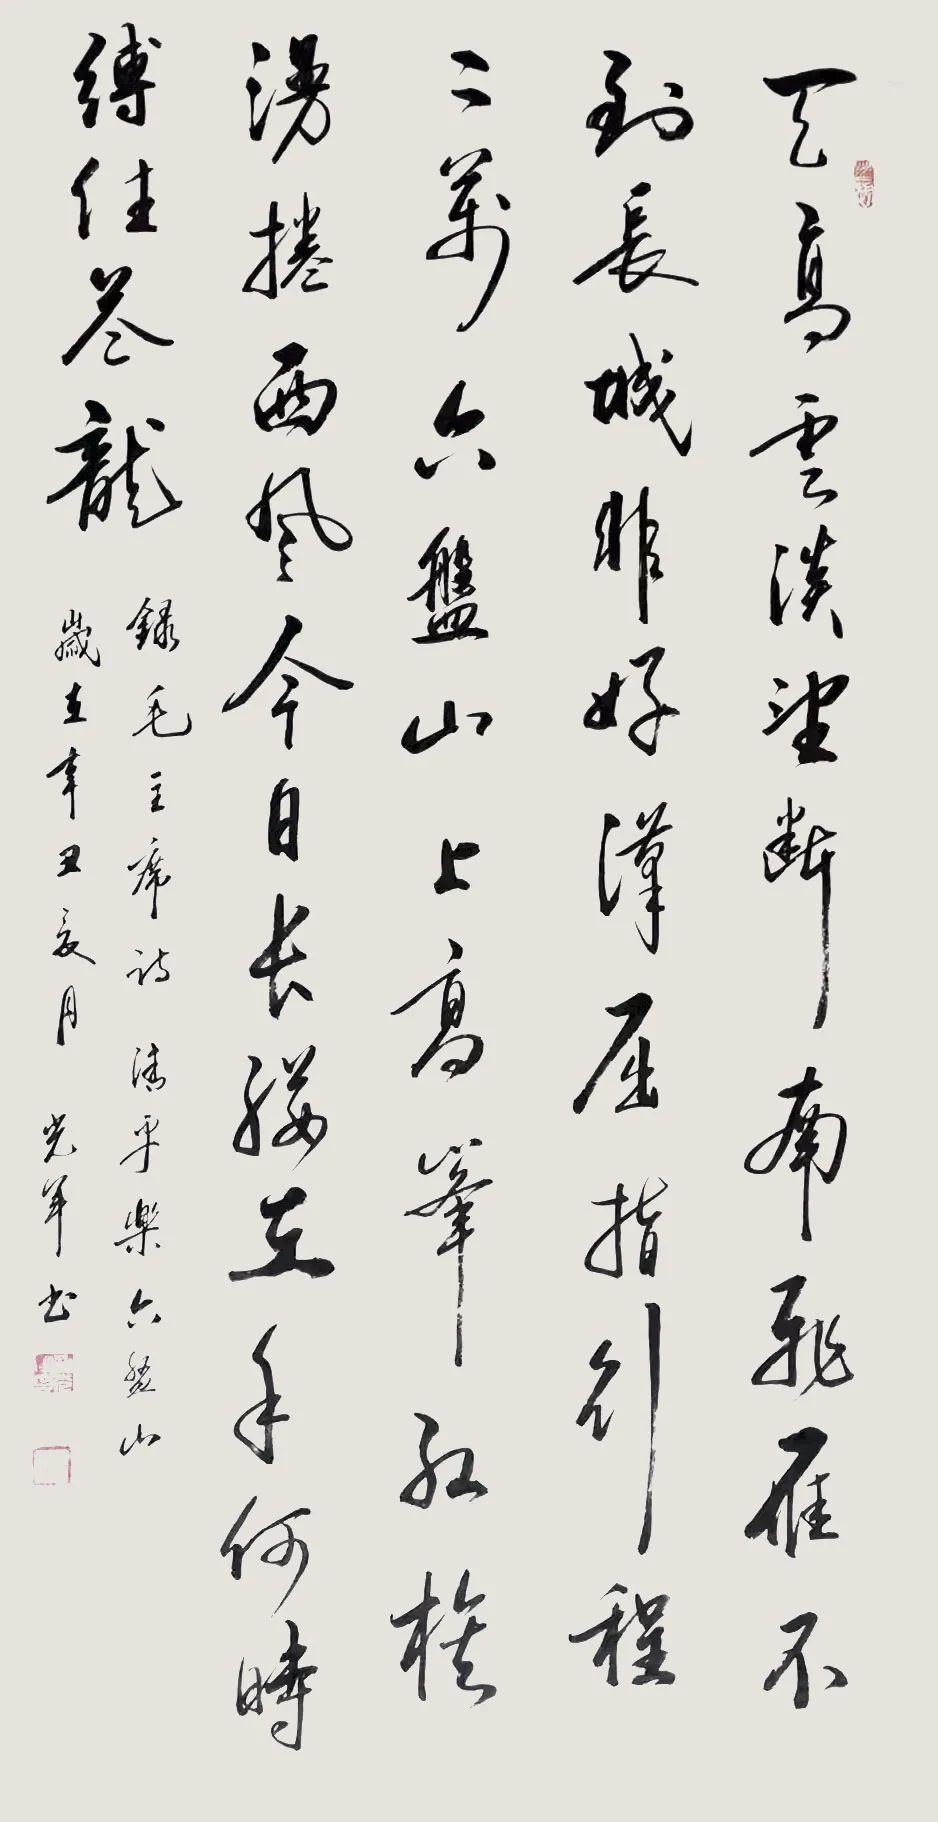 天高雲淡望斷南飛雁不
到長城非好漢屈指行程
二萬六盤山上高峯紅旗
漫捲西風今日长纓在手何時
縛住蒼龍
錄毛主席诗 清平樂六盤山
歲在辛丑夏月 光军书